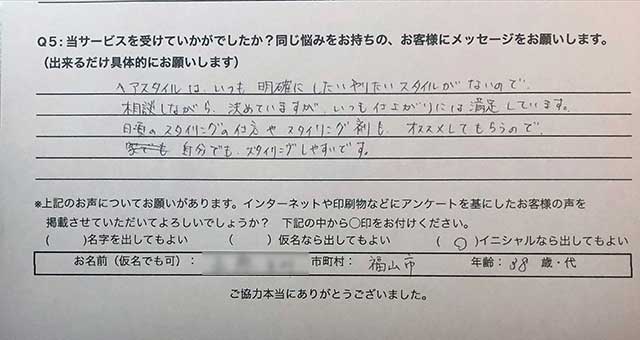 Q5：当サービスを受けていかがでしたか？同じ悩みをお持ちの、お客様にメッセージをお願いします。
（出来るだけ具体的にお願いします）
ヘアスタイルは、いつも明確にしたいやりたいスタイルがないので、
相談しながら、決めていますが、いつも仕上がりには満足しています。
日頃のスタイリングの仕方やスタイリング剤も、オススメしてもらうので、
自分でも、スタイリングしやすいです。
※上記のお声についてお願いがあります。インターネットや印刷物などにアンケートを基にしたお客様の声を
掲載させていただいてよろしいでしょうか？　下記の中から〇印をお付けください。
(　　)名字を出してもよい　(　　)仮名なら出してもよい　(　○　)イニシャルなら出してもよい
お名前（仮名でも可）：　市町村：　福山市　年齢：38　歳・代
ご協力本当にありがとうございました。